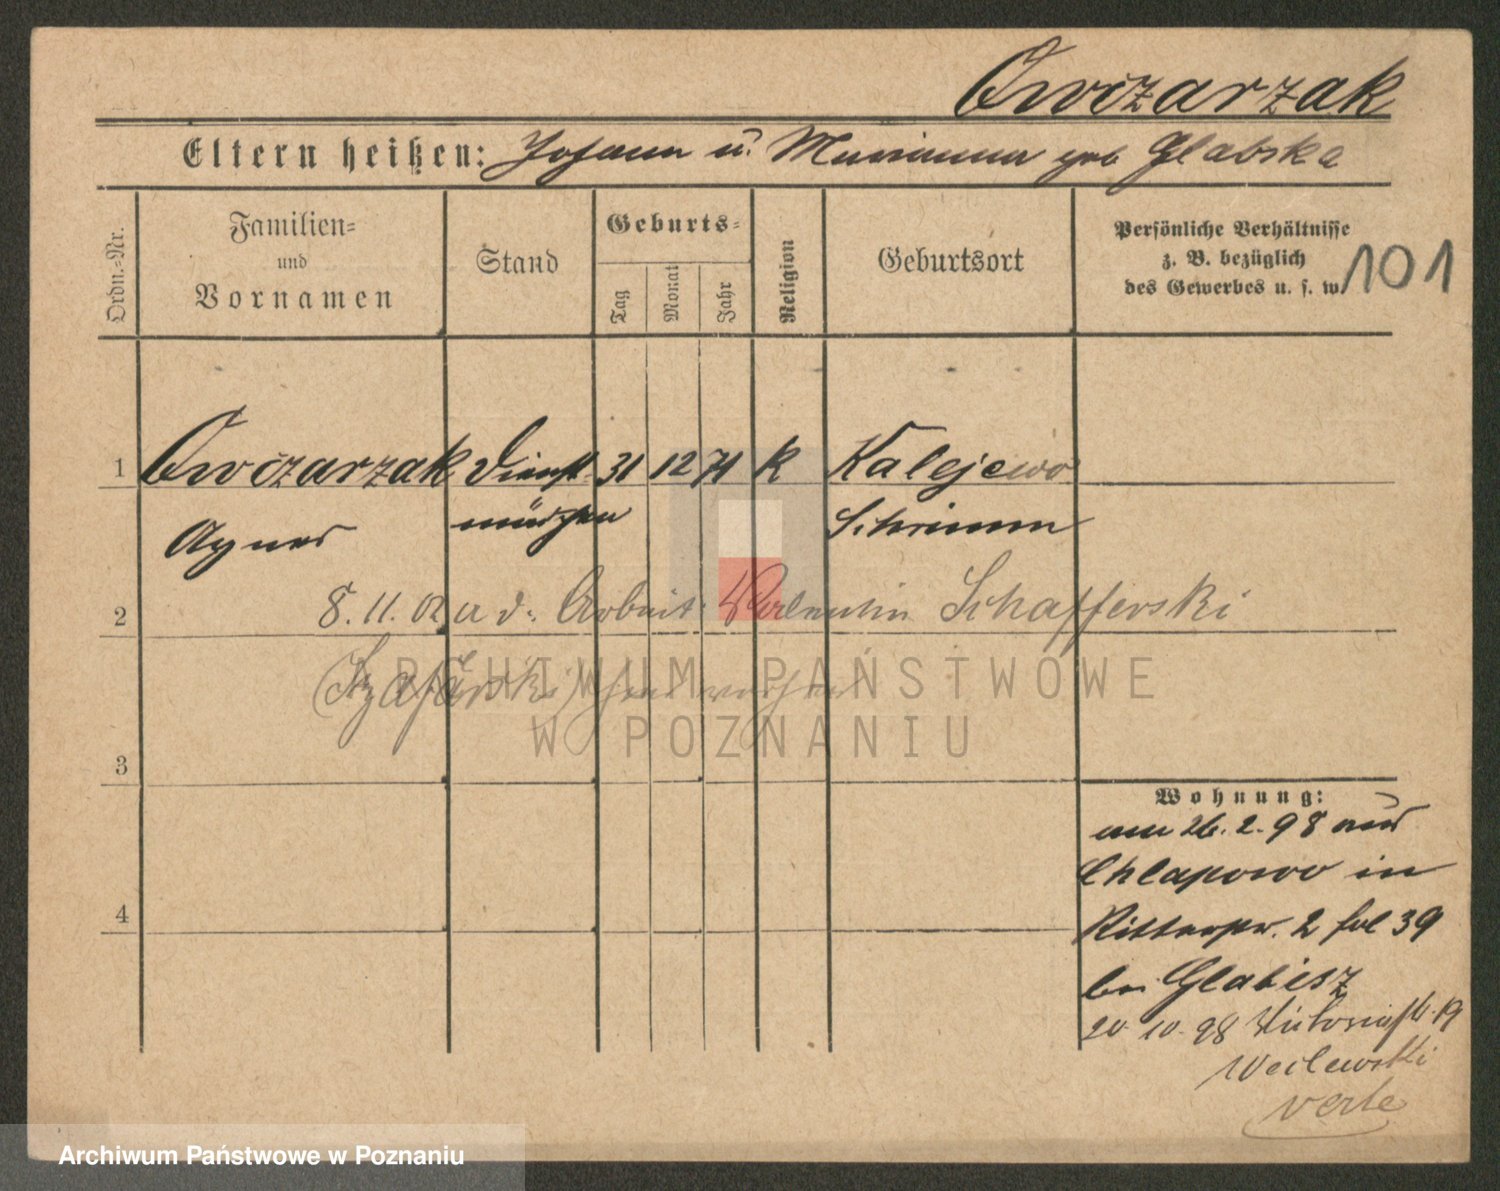 Owczarzak
Eltern heißen: Johann u. Marianna geb Glabska
Ordn.-Nr.
Familien-
und
Vornamen
Stand
Geburts-
Tag
Monat
Jahr
Religion
Geburtsort
Persönliche Verhältnisse
z. B. bezüglich
des Gewerbes u. s. w.
101
1 Owczarzak Dienst- 31 12 71 k Kalejewo
Agnes mädchen Schrimm
8.11.02 a d. Arbeit. Valentin Schafferski
2
(Szafarski)
ARCHIWUM PAŃSTWOWE
W POZNANIU
3
Wohnung:
am 26.2.98 aus
Chlapowo in
4
Ritterstr. 2 bei 39
bei Glabisz
20.10.98 Victoriastr. 19
Weclewski
verte
Archiwum Państwowe w Poznaniu